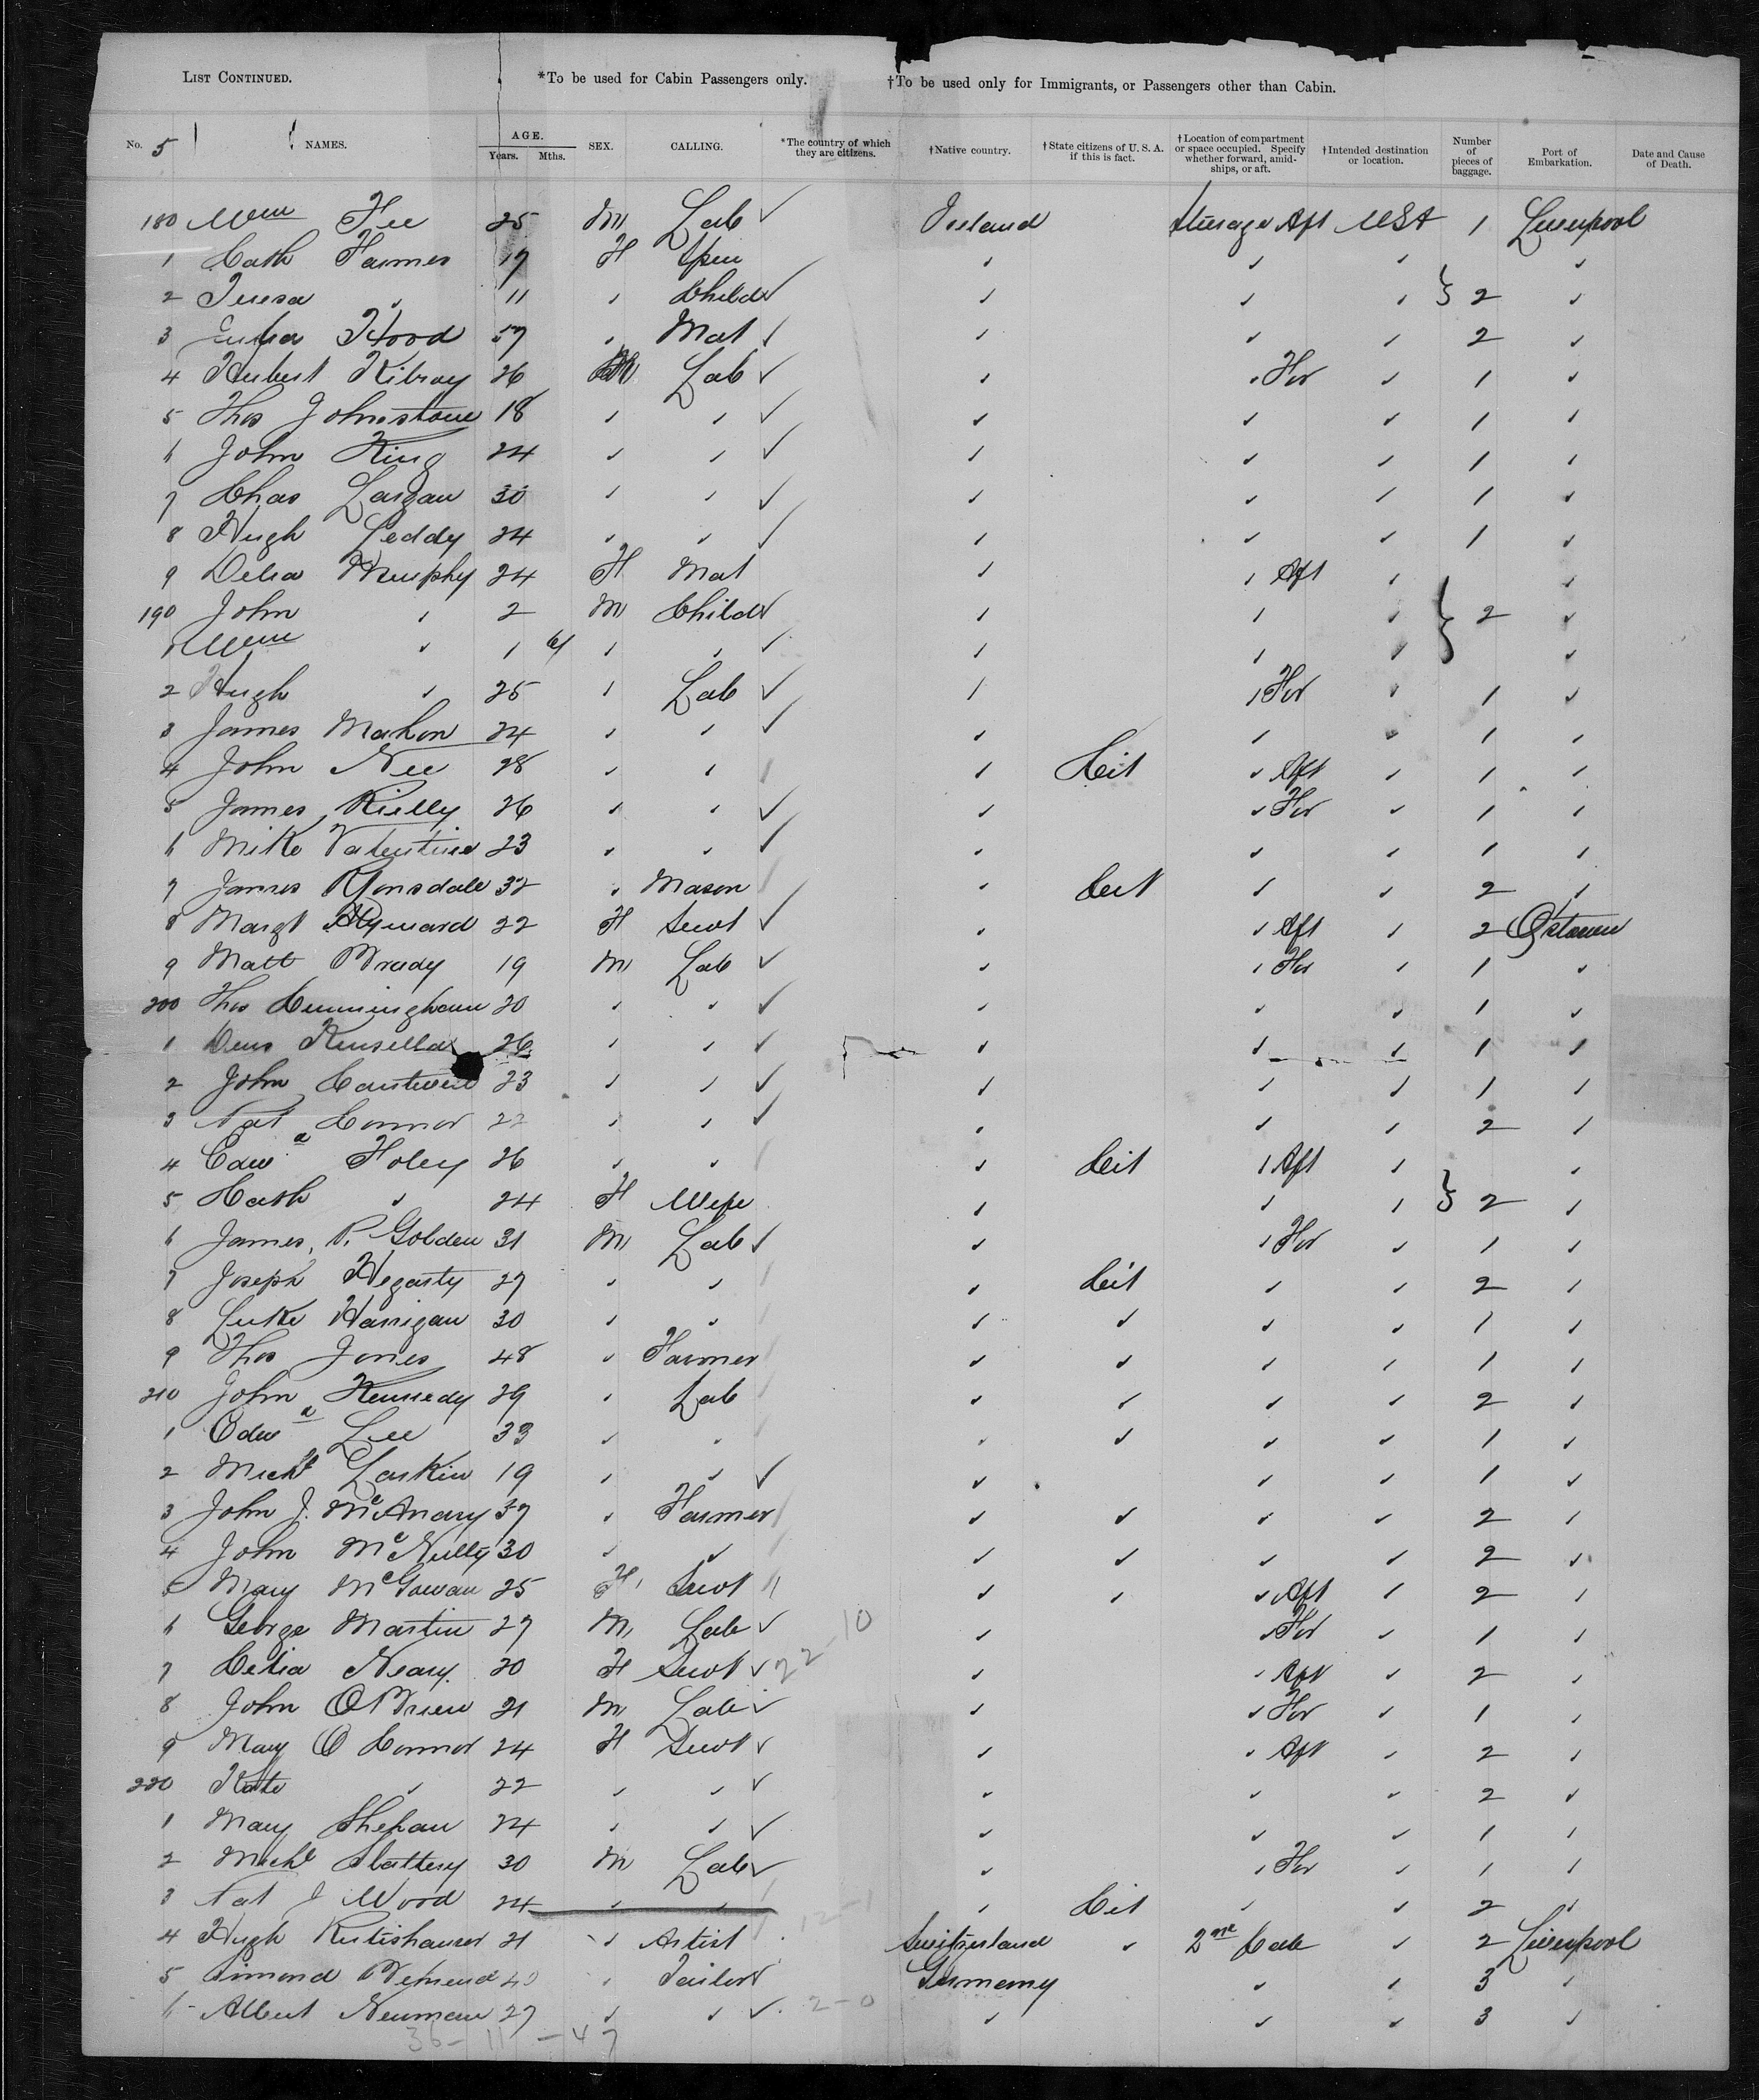 LIST CONTINUED. *To be used for Cabin Passengers only. †To be used only for Immigrants, or Passengers other than Cabin.
No. 5 NAMES. AGE. Years. Mths. SEX. CALLING. *The country of which they are citizens. †Native country. †State citizens of U. S. A. if this is fact. †Location of compartment or space occupied. Specify whether forward, amid-ships, or aft. †Intended destination or location. Number of pieces of baggage. Port of Embarkation. Date and Cause of Death.
180 Wm Fee 25 M Lab ✓ Ireland Steerage Aft USA 1 Liverpool
1 Cath Farmer 17 F Spin
2 Teresa " 11 " Child ✓ } 2
3 Hood 57 " Mat ✓ 2
4 Hubert Kilroy 26 M Lab ✓ For 1
5 Thos Johnstone 18 " " ✓ 1
6 John King 24 " " ✓ 1
7 Chas Largan 30 " " ✓ 1
8 Hugh Leddy 24 " " ✓ 1
9 Delia Murphy 24 F Mat Aft
190 John " 2 M Child ✓ } 2
1 Wm " 1 " " ✓
2 Hugh " 25 " Lab ✓ For 1
3 James Mahon 24 " " ✓ 1
4 John Nee 28 " " Cit Aft 1
5 James Rielly 26 " " ✓ For 1
6 Mike Valentine 23 " " ✓ 1
7 James 32 " Mason Cit 2
8 Margt 22 F Servt ✓ Aft 2 Qstown
9 Matt Brady 19 M Lab ✓ For 1
200 Thos Cunningham 20 " " ✓ 1
1 Denis Kinsella 26 " " ✓ 1
2 John Cantwell 23 " " ✓ 1
3 Pat Connor 22 " " ✓ 2
4 Edwd Foley 26 " " Cit Aft
5 Cath " 24 F Wife } 2
6 James P. Golden 31 M Lab ✓ For 1
7 Joseph Hegarty 27 " " Cit 2
8 Luke Harrigan 30 " " " 1
9 Thos Jones 48 " Farmer " 1
210 John Kennedy 29 " Lab " 2
1 Edwd Lee 33 " " " 1
2 Michl Larkin 19 " " ✓ 1
3 John J. McAnary 37 " Farmer " 2
4 John McNulty 30 " " " 2
5 Mary McGowan 25 F Servt " Aft 2
6 George Martin 27 M Lab ✓ For 1
7 Celia Neary 20 F Servt ✓ 22-10 Aft 2
8 John O'Brien 21 M Lab ✓ For 1
9 Mary O Connor 24 F Servt ✓ Aft 2
220 Kate " 22 " " ✓ 2
1 Mary Shehan 24 " " ✓ 1
2 Michl Slattery 30 M Lab ✓ For 1
3 Pat J Wood 24 " " Cit 2
4 Hugh Rutishauser 21 " Artist 12-1 Switzerland " 2nd Cab 2 Liverpool
5 Simond 40 " Tailor ✓ Germany 3
6 Albert Neuman 27 " " ✓ 2-0 3
36-11-47